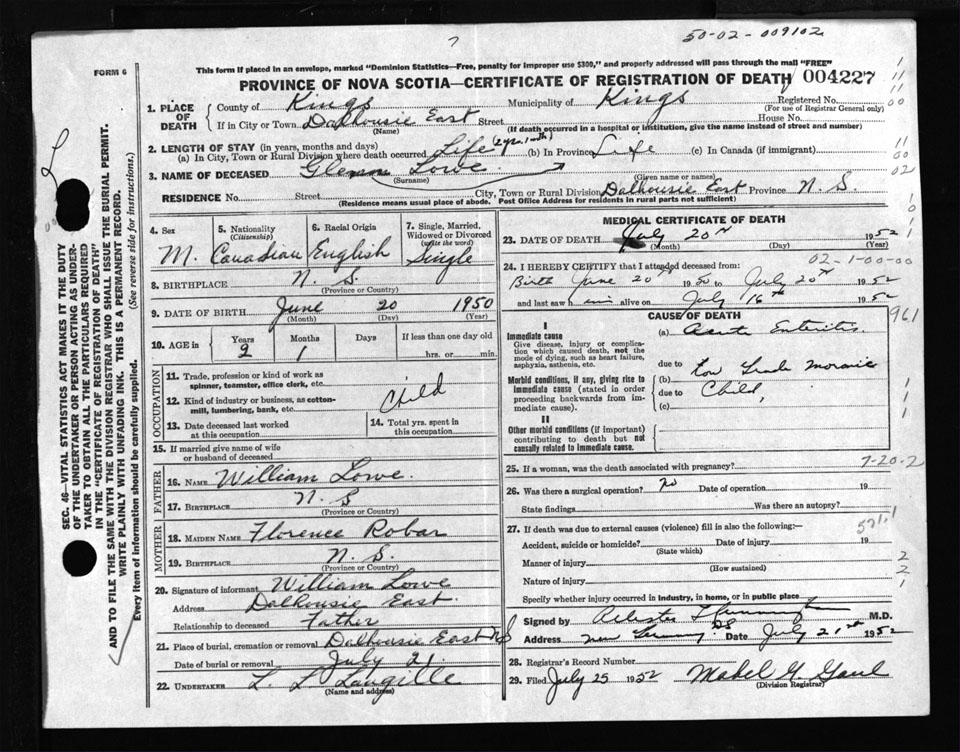 50-02-009102
FORM 6
This form if placed in an envelope, marked "Dominion Statistics—Free, penalty for improper use $300," and properly addressed will pass through the mail "FREE"
PROVINCE OF NOVA SCOTIA—CERTIFICATE OF REGISTRATION OF DEATH 004227
1. PLACE OF DEATH
County of Kings Municipality of Kings Registered No.
(For use of Registrar General only)
If in City or Town Dalhousie East Street House No.
(Name) (If death occurred in a hospital or institution, give the name instead of street and number)
2. LENGTH OF STAY (in years, months and days)
(a) In City, Town or Rural Division where death occurred Life (2 yrs. 1 mth) (b) In Province Life (c) In Canada (if immigrant)
3. NAME OF DECEASED Glenn Lowe
(Surname) (Given name or names)
RESIDENCE No. Street City, Town or Rural Division Dalhousie East Province N. S.
(Residence means usual place of abode. Post Office Address for residents in rural parts not sufficient)
4. Sex M.
5. Nationality (Citizenship) Canadian
6. Racial Origin English
7. Single, Married, Widowed or Divorced (write the word) Single
8. BIRTHPLACE N. S.
(Province or Country)
9. DATE OF BIRTH June 20 1950
(Month) (Day) (Year)
10. AGE in Years 2 Months 1 Days If less than one day old
hrs. or min.
OCCUPATION
11. Trade, profession or kind of work as spinner, teamster, office clerk, etc.
12. Kind of industry or business, as cotton-mill, lumbering, bank, etc. Child
13. Date deceased last worked at this occupation
14. Total yrs. spent in this occupation
15. If married give name of wife or husband of deceased
FATHER
16. NAME William Lowe.
17. BIRTHPLACE N. S
(Province or Country)
MOTHER
18. MAIDEN NAME Florence Robar
19. BIRTHPLACE N. S.
(Province or Country)
20. Signature of informant William Lowe
Address Dalhousie East.
Relationship to deceased Father
21. Place of burial, cremation or removal Dalhousie East NS
Date of burial or removal July 21
22. UNDERTAKER L. L Langille
(Name and address)
MEDICAL CERTIFICATE OF DEATH
23. DATE OF DEATH July 20th 1952
(Month) (Day) (Year)
02-1-00-00
24. I HEREBY CERTIFY that I attended deceased from:
Birth June 20th 1950 to July 20th 1952
and last saw him alive on July 16th 1952
CAUSE OF DEATH
961
I
Immediate cause
Give disease, injury or complication which caused death, not the mode of dying, such as heart failure, asphyxia, asthenia, etc.
(a) Acute Enteritis
due to
Morbid conditions, if any, giving rise to immediate cause (stated in order proceeding backwards from immediate cause).
(b) Low Grade
due to Child,
(c)
II
Other morbid conditions (if important) contributing to death but not causally related to immediate cause.
25. If a woman, was the death associated with pregnancy?
7-20-2
26. Was there a surgical operation? No Date of operation 19
State findings Was there an autopsy?
27. If death was due to external causes (violence) fill in also the following:—
571.1
Accident, suicide or homicide? Date of injury 19
(State which)
Manner of injury
(How sustained)
Nature of injury
Specify whether injury occurred in industry, in home, or in public place
Signed by M.D.
Address NS Date July 21st 1952
28. Registrar's Record Number
29. Filed July 25 1952 Mabel G. Gaul
(Division Registrar)
SEC. 46—VITAL STATISTICS ACT MAKES IT THE DUTY
OF THE UNDERTAKER OR PERSON ACTING AS UNDERTAKER
TO OBTAIN ALL THE PARTICULARS REQUIRED
IN THE "CERTIFICATE OF REGISTRATION OF DEATH"
AND TO FILE THE SAME WITH THE DIVISION REGISTRAR WHO SHALL ISSUE THE BURIAL PERMIT.
WRITE PLAINLY WITH UNFADING INK. THIS IS A PERMANENT RECORD.
Every item of information should be carefully supplied. (See reverse side for instructions.)